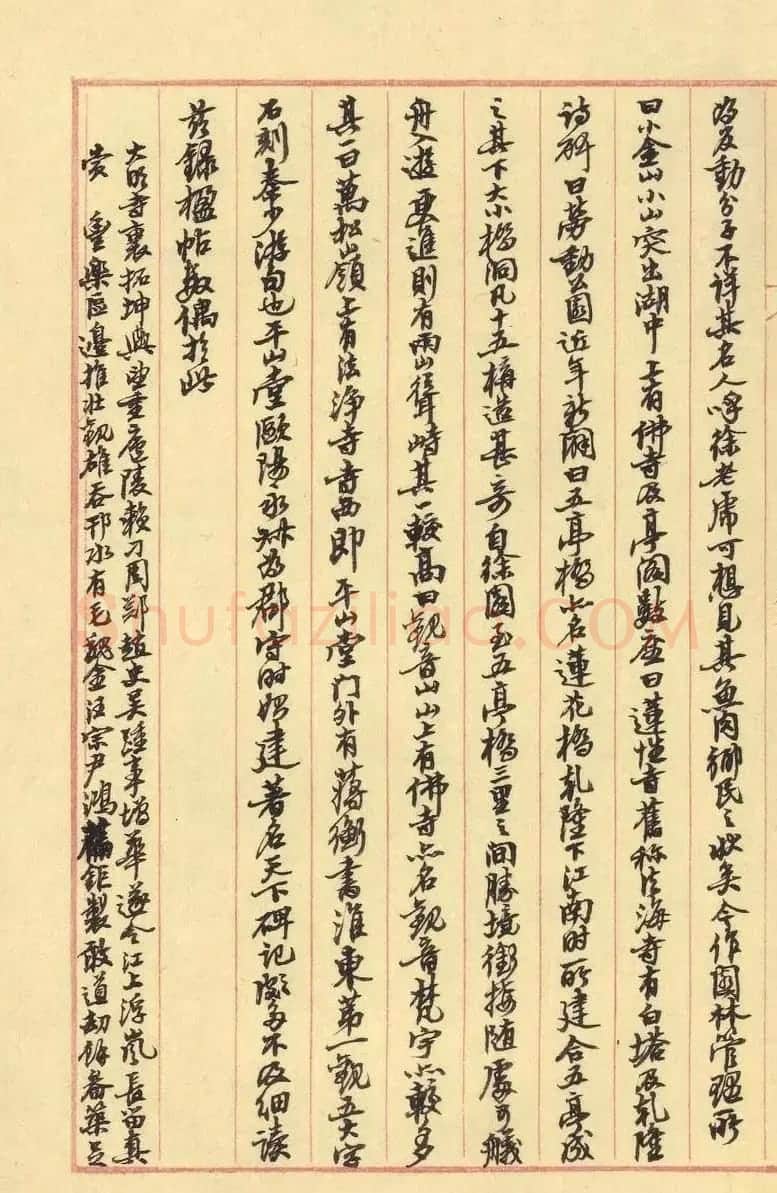 为反動分子不詳其名人呼徐老虎可想見其魚肉鄉民之狀矣今作園林管理所
曰小金山小山突出湖中上有佛寺及亭阁數座曰蓮性寺舊称法海寺有白塔及乾隆
詩碑曰劳動公園近年新闢曰五亭橋亦名蓮花橋乾隆下江南时所建合五亭成
之其下大小橋洞凡十五構造甚奇自徐園至五亭橋三里之间勝境銜接随處可艤
舟入遊再進則有兩山聳峙其一較高曰觀音山山上有佛寺亦名觀音梵宇亦較多
其一曰萬松嶺上有法淨寺寺西即平山堂门外有蔣衡書淮東第一觀五大字
石刻秦少游句也平山堂歐陽永叔为郡守时始建著名天下碑记頗多不及细读
茲錄楹帖数偶於此
大明寺裏拓坤輿望重廬陵賴刁周鄭趙史吴踵事增華遂令江上浮嵐長留真
赏 豐樂區邊推壮觀雄吞邗水有毛魏金汪宗尹鴻篇鉅製敢道劫餘番藥是
Shufaziliao.COM